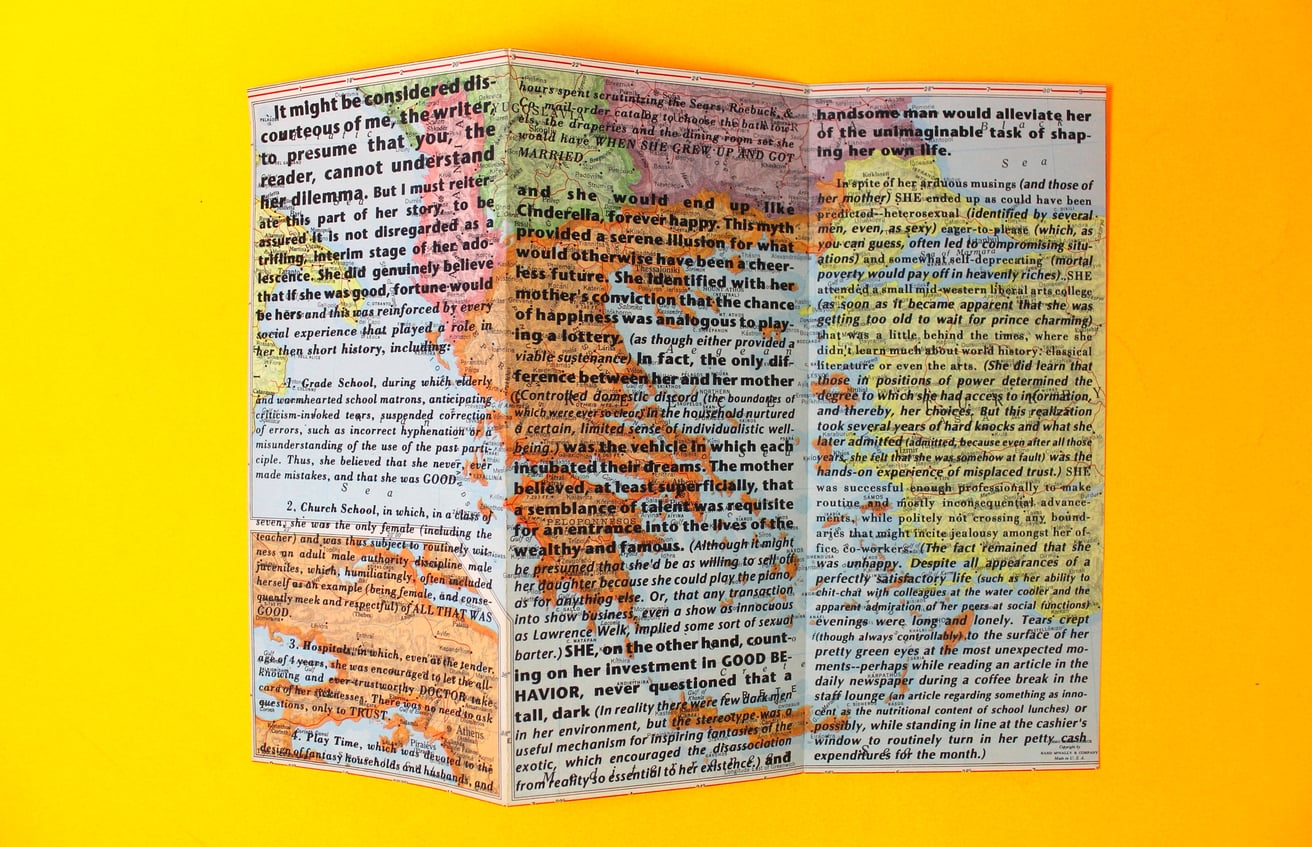 It might be considered dis-
courteous of me, the writer,
to presume that you, the
reader, cannot understand
her dilemma. But I must reiter-
ate this part of her story, to be
assured it is not disregarded as a
trifling, interim stage of her ado-
lescence. She did genuinely believe
that if she was good, fortune would
be hers and this was reinforced by every
social experience that played a role in
her then short history, including:
1. Grade School, during which elderly
and wormhearted school matrons, anticipating
criticism-invoked tears, suspended correction
of errors, such as incorrect hyphenation or a
misunderstanding of the use of the past parti-
ciple. Thus, she believed that she never, ever
made mistakes, and that she was GOOD.
2. Church School, in which, in a class of
seven, she was the only female (including the
teacher) and was thus subject to routinely wit-
ness an adult male authority discipline male
juveniles, which, humiliatingly, often included
herself as an example (being female, and conse-
quently meek and respectful) of ALL THAT WAS
GOOD.
3. Hospitals, in which, even at the tender
age of 4 years, she was encouraged to let the all-
knowing and ever-trustworthy DOCTOR take
card of her sicknesses. There was no need to ask
questions, only to TRUST.
4. Play Time, which was devoted to the
design of fantasy households and husbands, and
hours spent scrutinizing the Sears, Roebuck, &
Co. mail-order catalog to choose the bath tow-
els, the draperies and the dining room set she
would have WHEN SHE GREW UP AND GOT
MARRIED.
and she would end up like
Cinderella, forever happy. This myth
provided a serene illusion for what
would otherwise have been a cheer-
less future. She identified with her
mother's conviction that the chance
of happiness was analogous to play-
ing a lottery. (as though either provided a
viable sustenance) In fact, the only dif-
ference between her and her mother
(Controlled domestic discord (the boundaries of
which were ever so clear) in the household nurtured
a certain, limited sense of individualistic well-
being.) was the vehicle in which each
incubated their dreams. The mother
believed, at least superficially, that
a semblance of talent was requisite
for an entrance into the lives of the
wealthy and famous. (Although it might
be presumed that she'd be as willing to sell off
her daughter because she could play the piano,
as for anything else. Or, that any transaction
into show business, even a show as innocuous
as Lawrence Welk, implied some sort of sexual
barter.) SHE, on the other hand, count-
ing on her investment in GOOD BE-
HAVIOR, never questioned that a
tall, dark (In reality there were few dark men
in her environment, but the stereotype was a
useful mechanism for inspiring fantasies of the
exotic, which encouraged the disassociation
from reality so essential to her existence.) and
handsome man would alleviate her
of the unimaginable task of shap-
ing her own life.
In spite of her arduous musings (and those of
her mother) SHE ended up as could have been
predicted--heterosexual (identified by several
men, even, as sexy) eager-to-please (which, as
you can guess, often led to compromising situ-
ations) and somewhat self-deprecating (mortal
poverty would pay off in heavenly riches). SHE
attended a small mid-western liberal arts college
(as soon as it became apparent that she was
getting too old to wait for prince charming)
that was a little behind the times, where she
didn't learn much about world history, classical
literature or even the arts. (She did learn that
those in positions of power determined the
degree to which she had access to information,
and thereby, her choices. But this realization
took several years of hard knocks and what she
later admitted (admitted, because even after all those
years, she felt that she was somehow at fault) was the
hands-on experience of misplaced trust.) SHE
was successful enough professionally to make
routine and mostly inconsequential advance-
ments, while politely not crossing any bound-
aries that might incite jealousy amongst her of-
fice co-workers. (The fact remained that she
was unhappy. Despite all appearances of a
perfectly satisfactory life (such as her ability to
chit-chat with colleagues at the water cooler and the
apparent admiration of her peers at social functions)
evenings were long and lonely. Tears crept
(though always controllably) to the surface of her
pretty green eyes at the most unexpected mo-
ments--perhaps while reading an article in the
daily newspaper during a coffee break in the
staff lounge (an article regarding something as inno-
cent as the nutritional content of school lunches) or
possibly, while standing in line at the cashier's
window to routinely turn in her petty cash
expenditures for the month.)
YUGOSLAVIA
Skoplje
Thessaloniki
PELOPONNESOS
Athens
Piraiévs
CRETE
Sea of Marmara
İstanbul
İzmir
Black
Sea
Aegean
Sea
Copyright by
RAND McNALLY & COMPANY
Made in U. S. A.